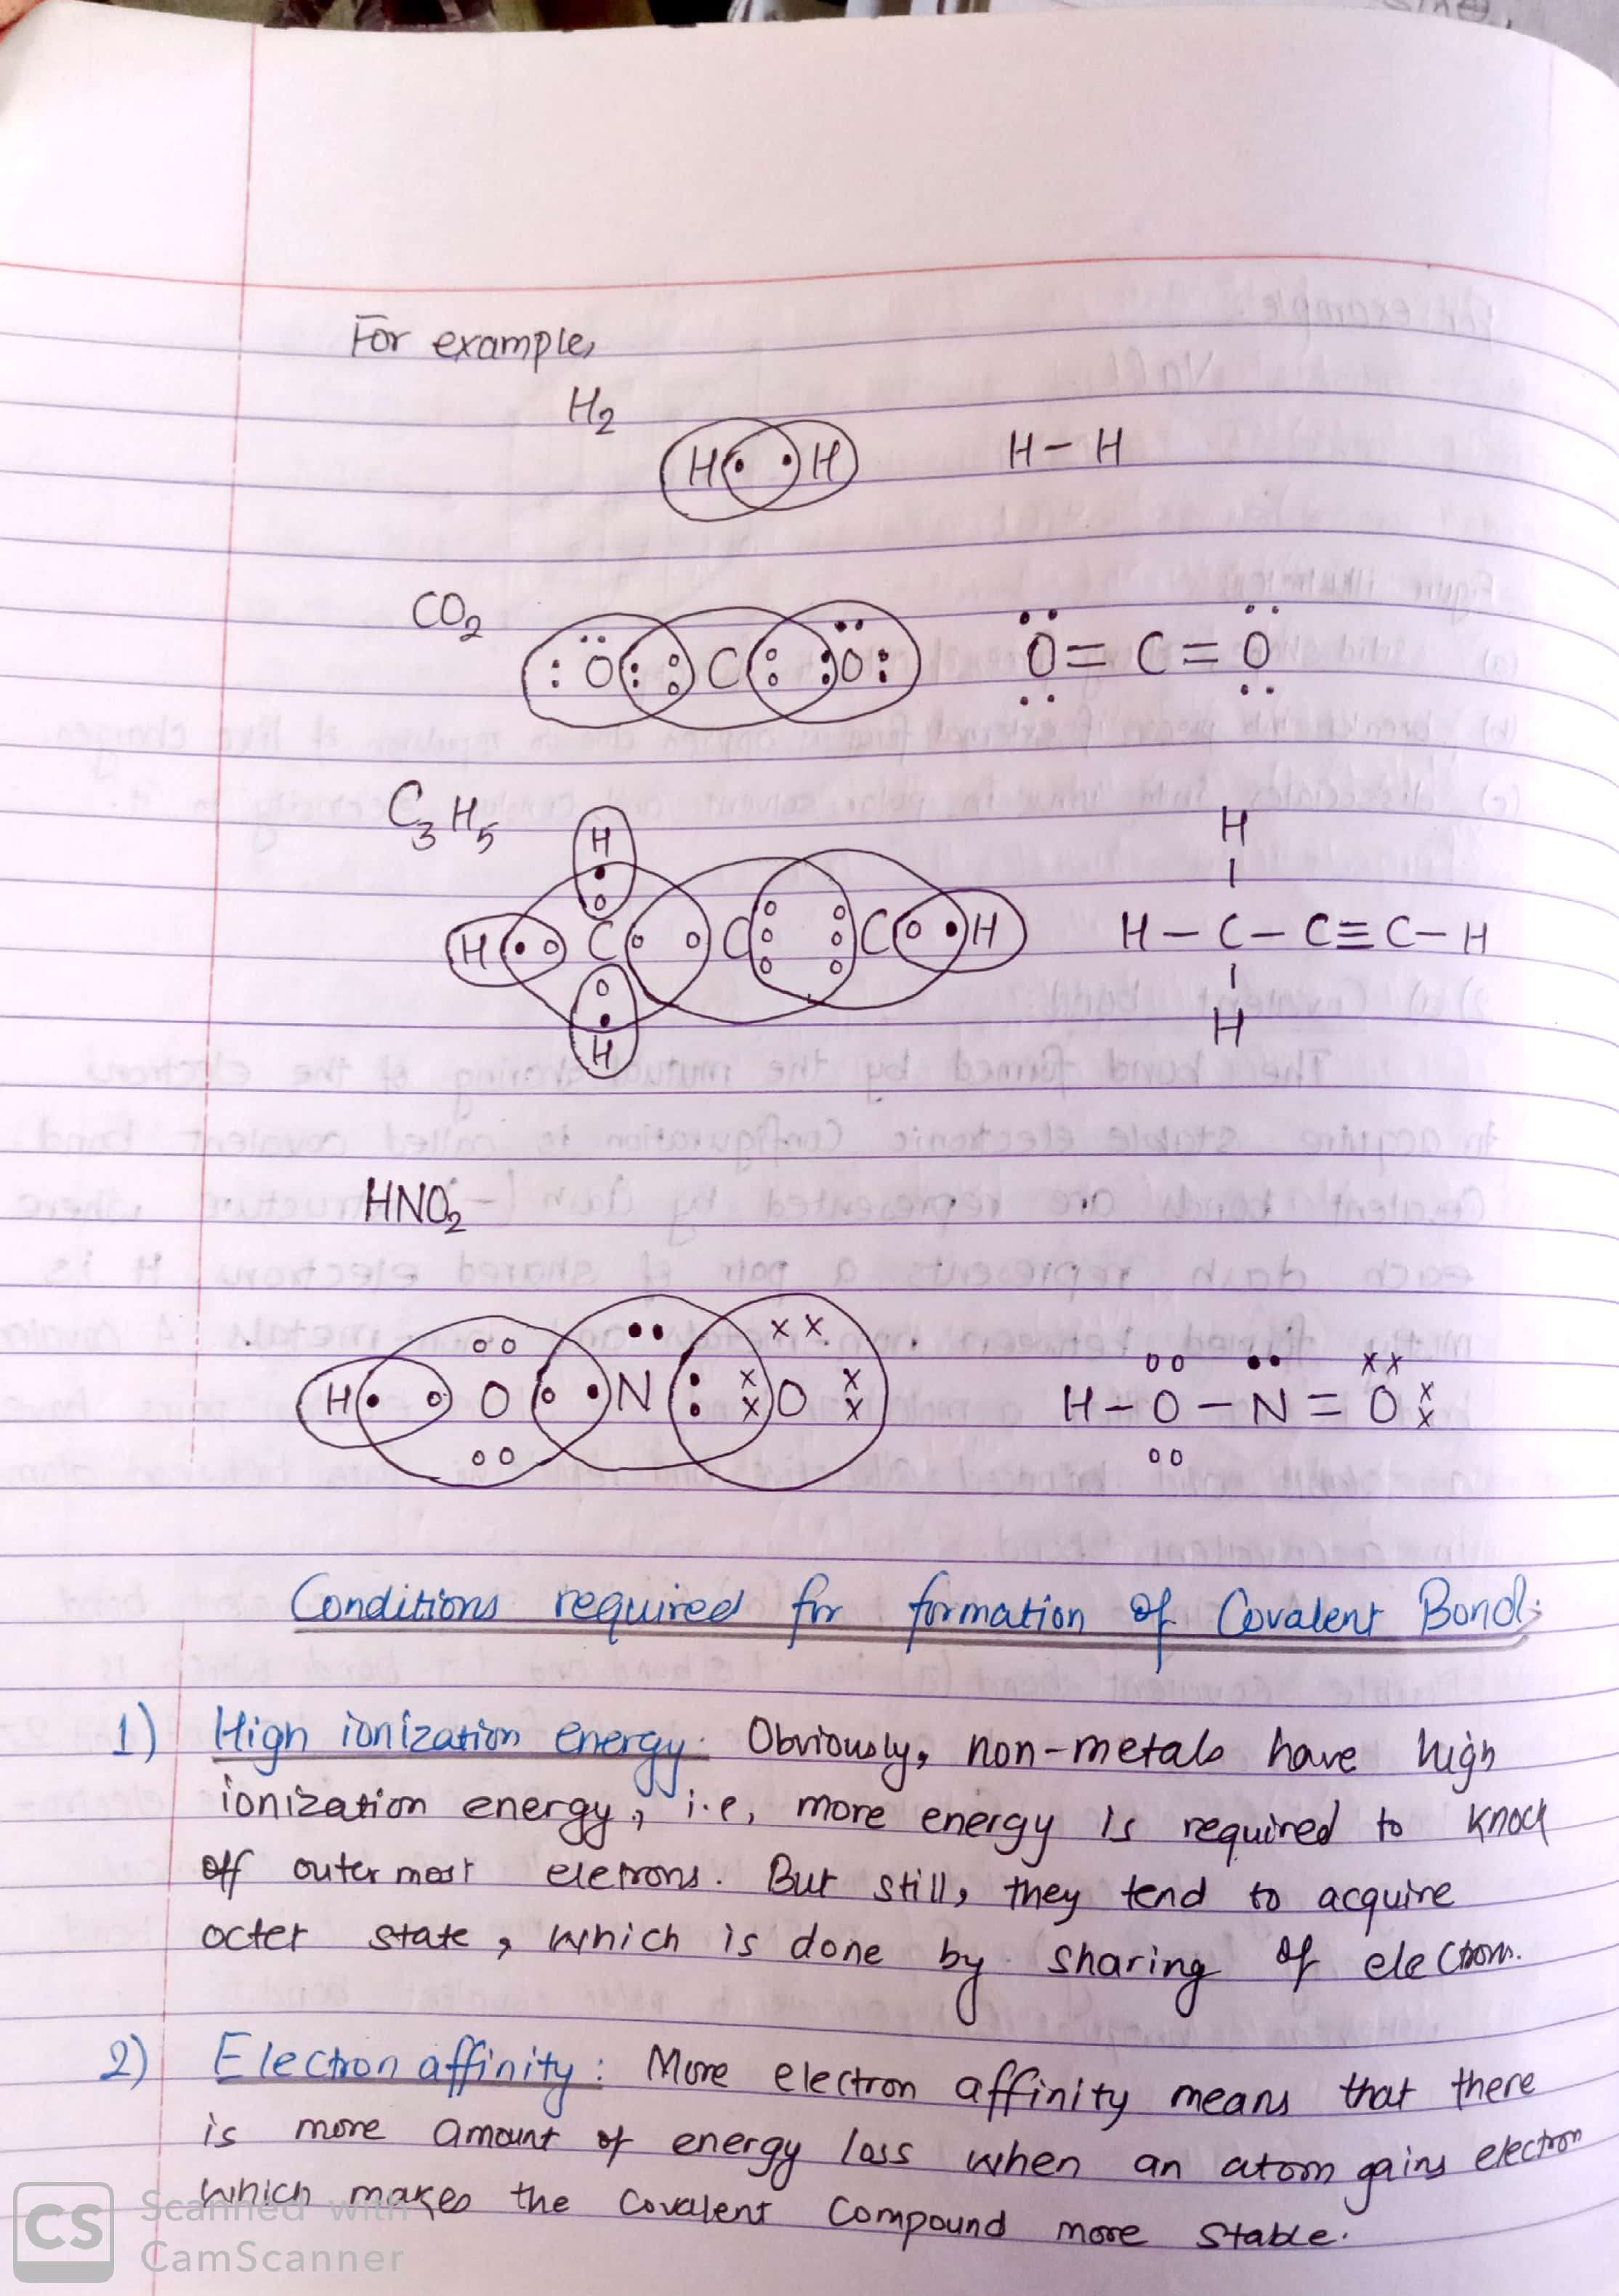 For example,
H₂
H • • H    H – H
CO₂
: Ö : : C : : Ö :    Ö = C = Ö
C₃H₅
H
H
H C C C H    H – C – C ≡ C – H
H
H
HNO₂
H O N O    H – O – N = O
Conditions required for formation of Covalent Bond:
1) High ionization energy: Obviously, non-metals have high
ionization energy, i.e, more energy is required to knock
off outer most eletrons. But still, they tend to acquire
octet state, which is done by sharing of electrons.
2) Electron affinity: More electron affinity means that there
is more amount of energy loss when an atom gains electron
which makes the covalent compound more stable.
CS Scanned with
CamScanner